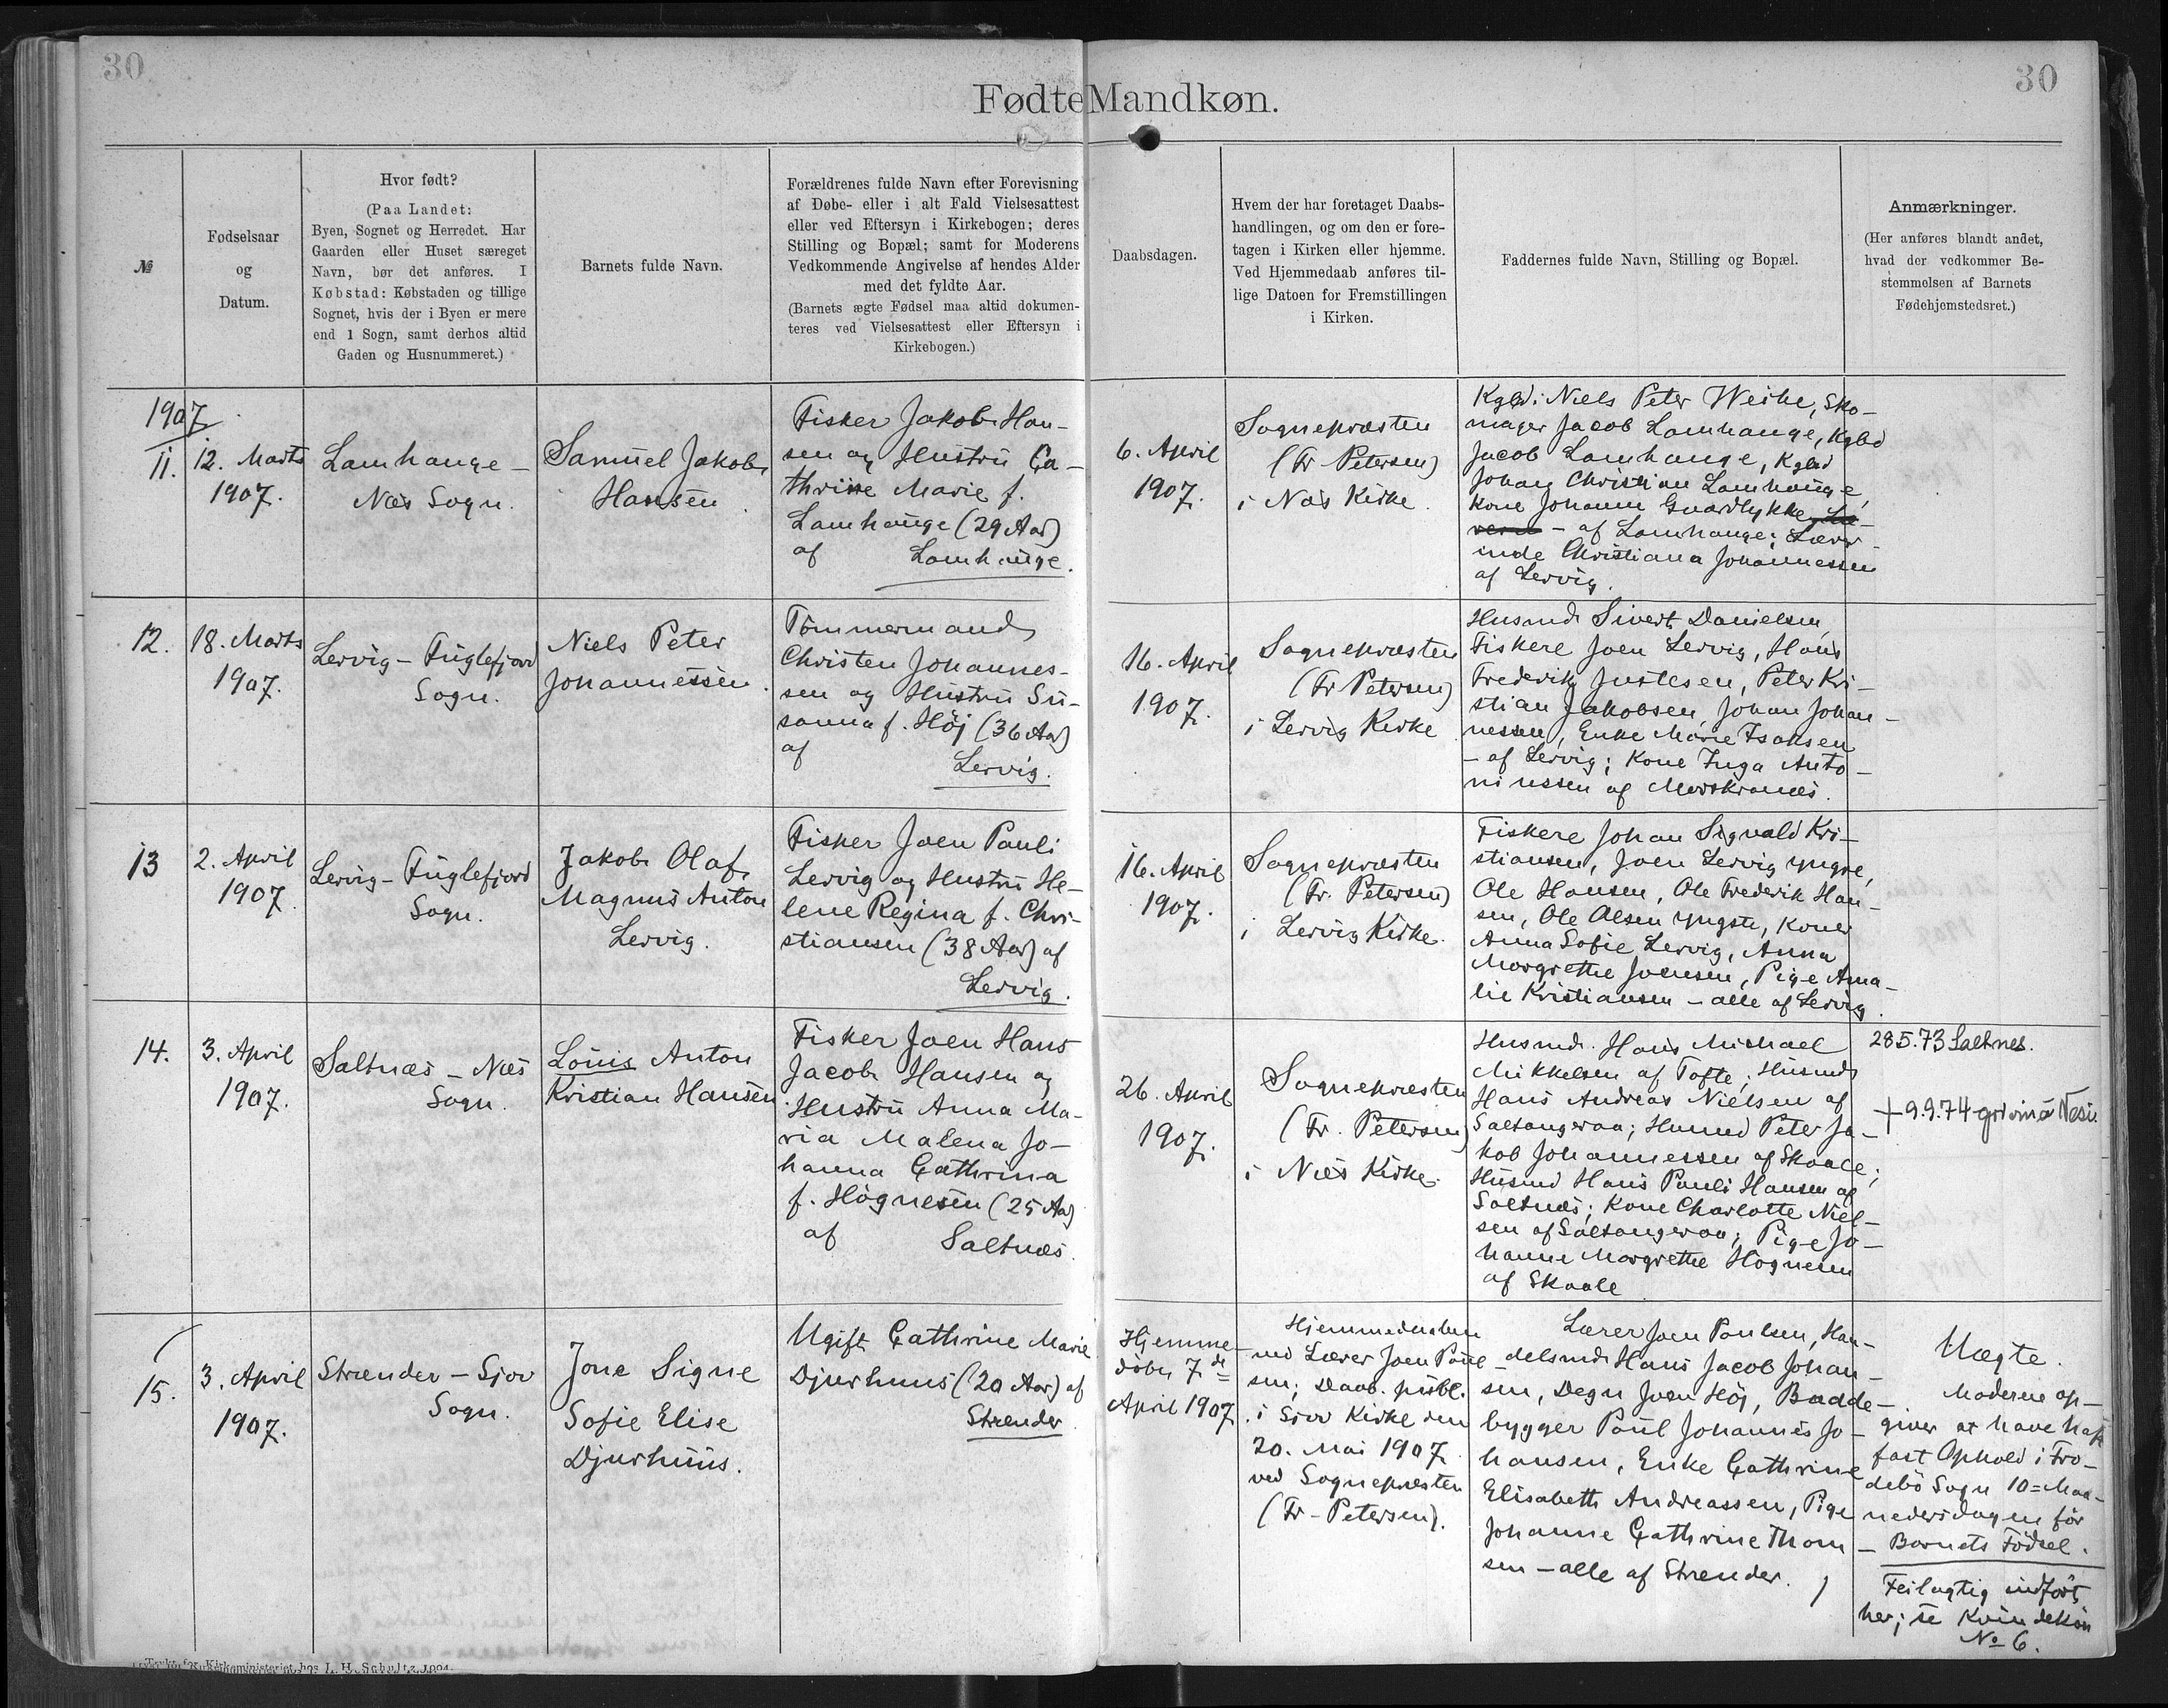 30
30
Fødte Mandkøn.
№
Fødselsaar
og
Datum.
Hvor født?
(Paa Landet:
Byen, Sognet og Herredet. Har
Gaarden eller Huset særeget
Navn, bør det anføres. I
Købstad: Købstaden og tillige
Sognet, hvis der i Byen er mere
end 1 Sogn, samt derhos altid
Gaden og Husnummeret.)
Barnets fulde Navn.
Forældrenes fulde Navn efter Forevisning
af Døbe- eller i alt Fald Vielsesattest
eller ved Eftersyn i Kirkebogen; deres
Stilling og Bopæl; samt for Moderens
Vedkommende Angivelse af hendes Alder
med det fyldte Aar.
(Barnets ægte Fødsel maa altid dokumen-
teres ved Vielsesattest eller Eftersyn i
Kirkebogen.)
Daabsdagen.
Hvem der har foretaget Daabs-
handlingen, og om den er fore-
tagen i Kirken eller hjemme.
Ved Hjemmedaab anføres til-
lige Datoen for Fremstillingen
i Kirken.
Faddernes fulde Navn, Stilling og Bopæl.
Anmærkninger.
(Her anføres blandt andet,
hvad der vedkommer Be-
stemmelsen af Barnets
Fødehjemstedsret.)
1907
11.
12. Marts
1907.
Lamhauge –
Næs Sogn.
Samuel Jakob
Hansen
Fisker Jakob Han-
sen og Hustru Ca-
thrine Marie f.
Lamhauge (29 Aar)
af Lamhauge.
6. April
1907.
Sognepræsten
(Fr Petersen)
i Næs Kirke.
Kgbd: Niels Peter Weihe, Sko-
mager Jacob Lamhauge, Kgbd
Jacob Lamhauge, Kgbd
Johan Christian Lamhauge,
Kone Johanne Guardlykke
– af Lamhauge; Lærer-
inde Christiana Johannessen
af Lervig.
12.
18. Marts
1907.
Lervig – Fuglefjord
Sogn.
Niels Peter
Johannessen.
Tømmermand
Christen Johannes-
sen og Hustru Su-
sanna f. Höj (36 Aar)
af
Lervig.
16. April
1907.
Sognepræsten
(Fr Petersen)
i Lervig Kirke
Husmd Sivert Danielsen,
Fiskere Joen Lervig, Hans
Frederik Justesen, Peter Kri-
stian Jakobsen, Johan Johan-
nessen, Enke Marie Isaksen
– af Lervig; Kone Inga Anto-
ninussen af Morskranæs.
13
2. April
1907.
Lervig – Fuglefjord
Sogn.
Jakob Olaf
Magnus Anton
Lervig.
Fisker Joen Pauli
Lervig og Hustru He-
lene Regina f. Chri-
stiansen (38 Aar) af
Lervig.
16. April
1907.
Sognepræsten
(Fr. Petersen)
i Lervig Kirke.
Fiskere Johan Signald Kri-
stiansen, Joen Lervig yngre,
Ole Hansen, Ole Frederik Han-
sen, Ole Olsen yngste, Koner
Anna Sofie Lervig, Anna
Margrethe Joensen, Pige Ama-
lie Kristiansen – alle af Lervig.
14.
3. April
1907.
Saltnæs – Næs
Sogn.
Louis Anton
Kristian Hansen
Fisker Joen Hans
Jacob Hansen og
Hustru Anna Ma-
ria Malena Jo-
hanna Cathrina
f. Högnesen (25 Aar)
af Saltnæs.
26. April
1907.
Sognepræsten
(Fr. Petersen)
i Næs Kirke.
Husmd. Hans Michael
Mikkelsen af Tofte; Husmd
Hans Andreas Nielsen af
Saltangeraa; Husmd Peter Ja-
kob Johannessen af Skaale;
Husmd Hans Pauli Hansen af
Saltnæs; Kone Charlotte Niel-
sen af Saltangeraa; Pige Jo-
hanne Margrethe Högnesen
af Skaale
285.73 Saltnes.
+9.9.74 grivin á Nesi.
15.
3. April
1907.
Strænder – Sjov
Sogn.
Jone Signe
Sofie Elise
Djurhuus.
Ugift Cathrine Marie
Djurhuus (20 Aar) af
Strænder
Hjemme-
døbt 7de
April 1907
Hjemmedøbt
ved Lærer Joen Poul-
sen; Daab. publ.
i Sjov Kirke den
20. Mai 1907
ved Sognepræsten
(Fr. Petersen).
Lærer Joen Poulsen, Han-
delsmd Hans Jacob Johan-
sen, Degn Joen Höj, Baade-
bygger Poul Johannes Jo-
hansen, Enke Cathrine
Elisabeth Andreassen, Pige
Johanne Cathrine Thom-
sen – alle af Strænder.
Uægte.
Moderen op-
giver at have haft
fast Ophold i Fro-
debö Sogn 10=Maa-
nedersdagen før
Barnets Födsel.
Feilagtig indført
her; se Kvindekøn
No 6.
Trykt for Kirkeministeriet hos J. H. Schultz. 1904.